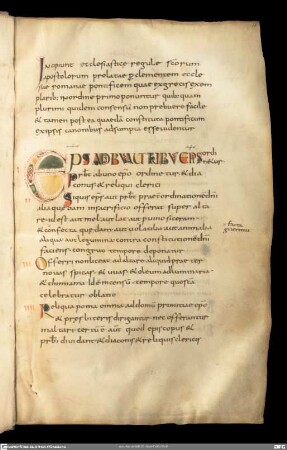 Incipiunt ecclesiasticae regulae scorum
apostolorum prolatae p clementem eccle
siae romanae pontificem quae ex grecis exem
plaribus in ordine primo ponuntur quibus quam
plurimi quidem consensum non prebuere facile
& tamen post ea quaedam constituta pontificum
ex ipsis canonibus adsumpta esse videntur
EPS A DUOBUS AUT TRIBUS EPIS
Prbr ab uno epo ordinetur & dia
conus & reliqui clerici
Siquis eps aut prbr praeter ordinationem dni
alia quaedam in sacrificio offerat super alta
re id est aut mel aut lac aut pro uino siceram
& confecta quaedam aut uolatilia aut animalia
aliqua aut legumina contra constitutionem dni
faciens congruo tempore deponatur
Offerri non liceat ad altare aliquid praeter
nouas spicas & uuas & oleum ad luminaria
& thimiama id est incensum tempore quo sca
celebratur oblatio
Reliqua poma omnia ad domum primitiae epo
& presbiteris dirigantur nec offerantur
in altari certum est autem quod episcopus &
prbri diuidant & diaconis & reliquis clericis